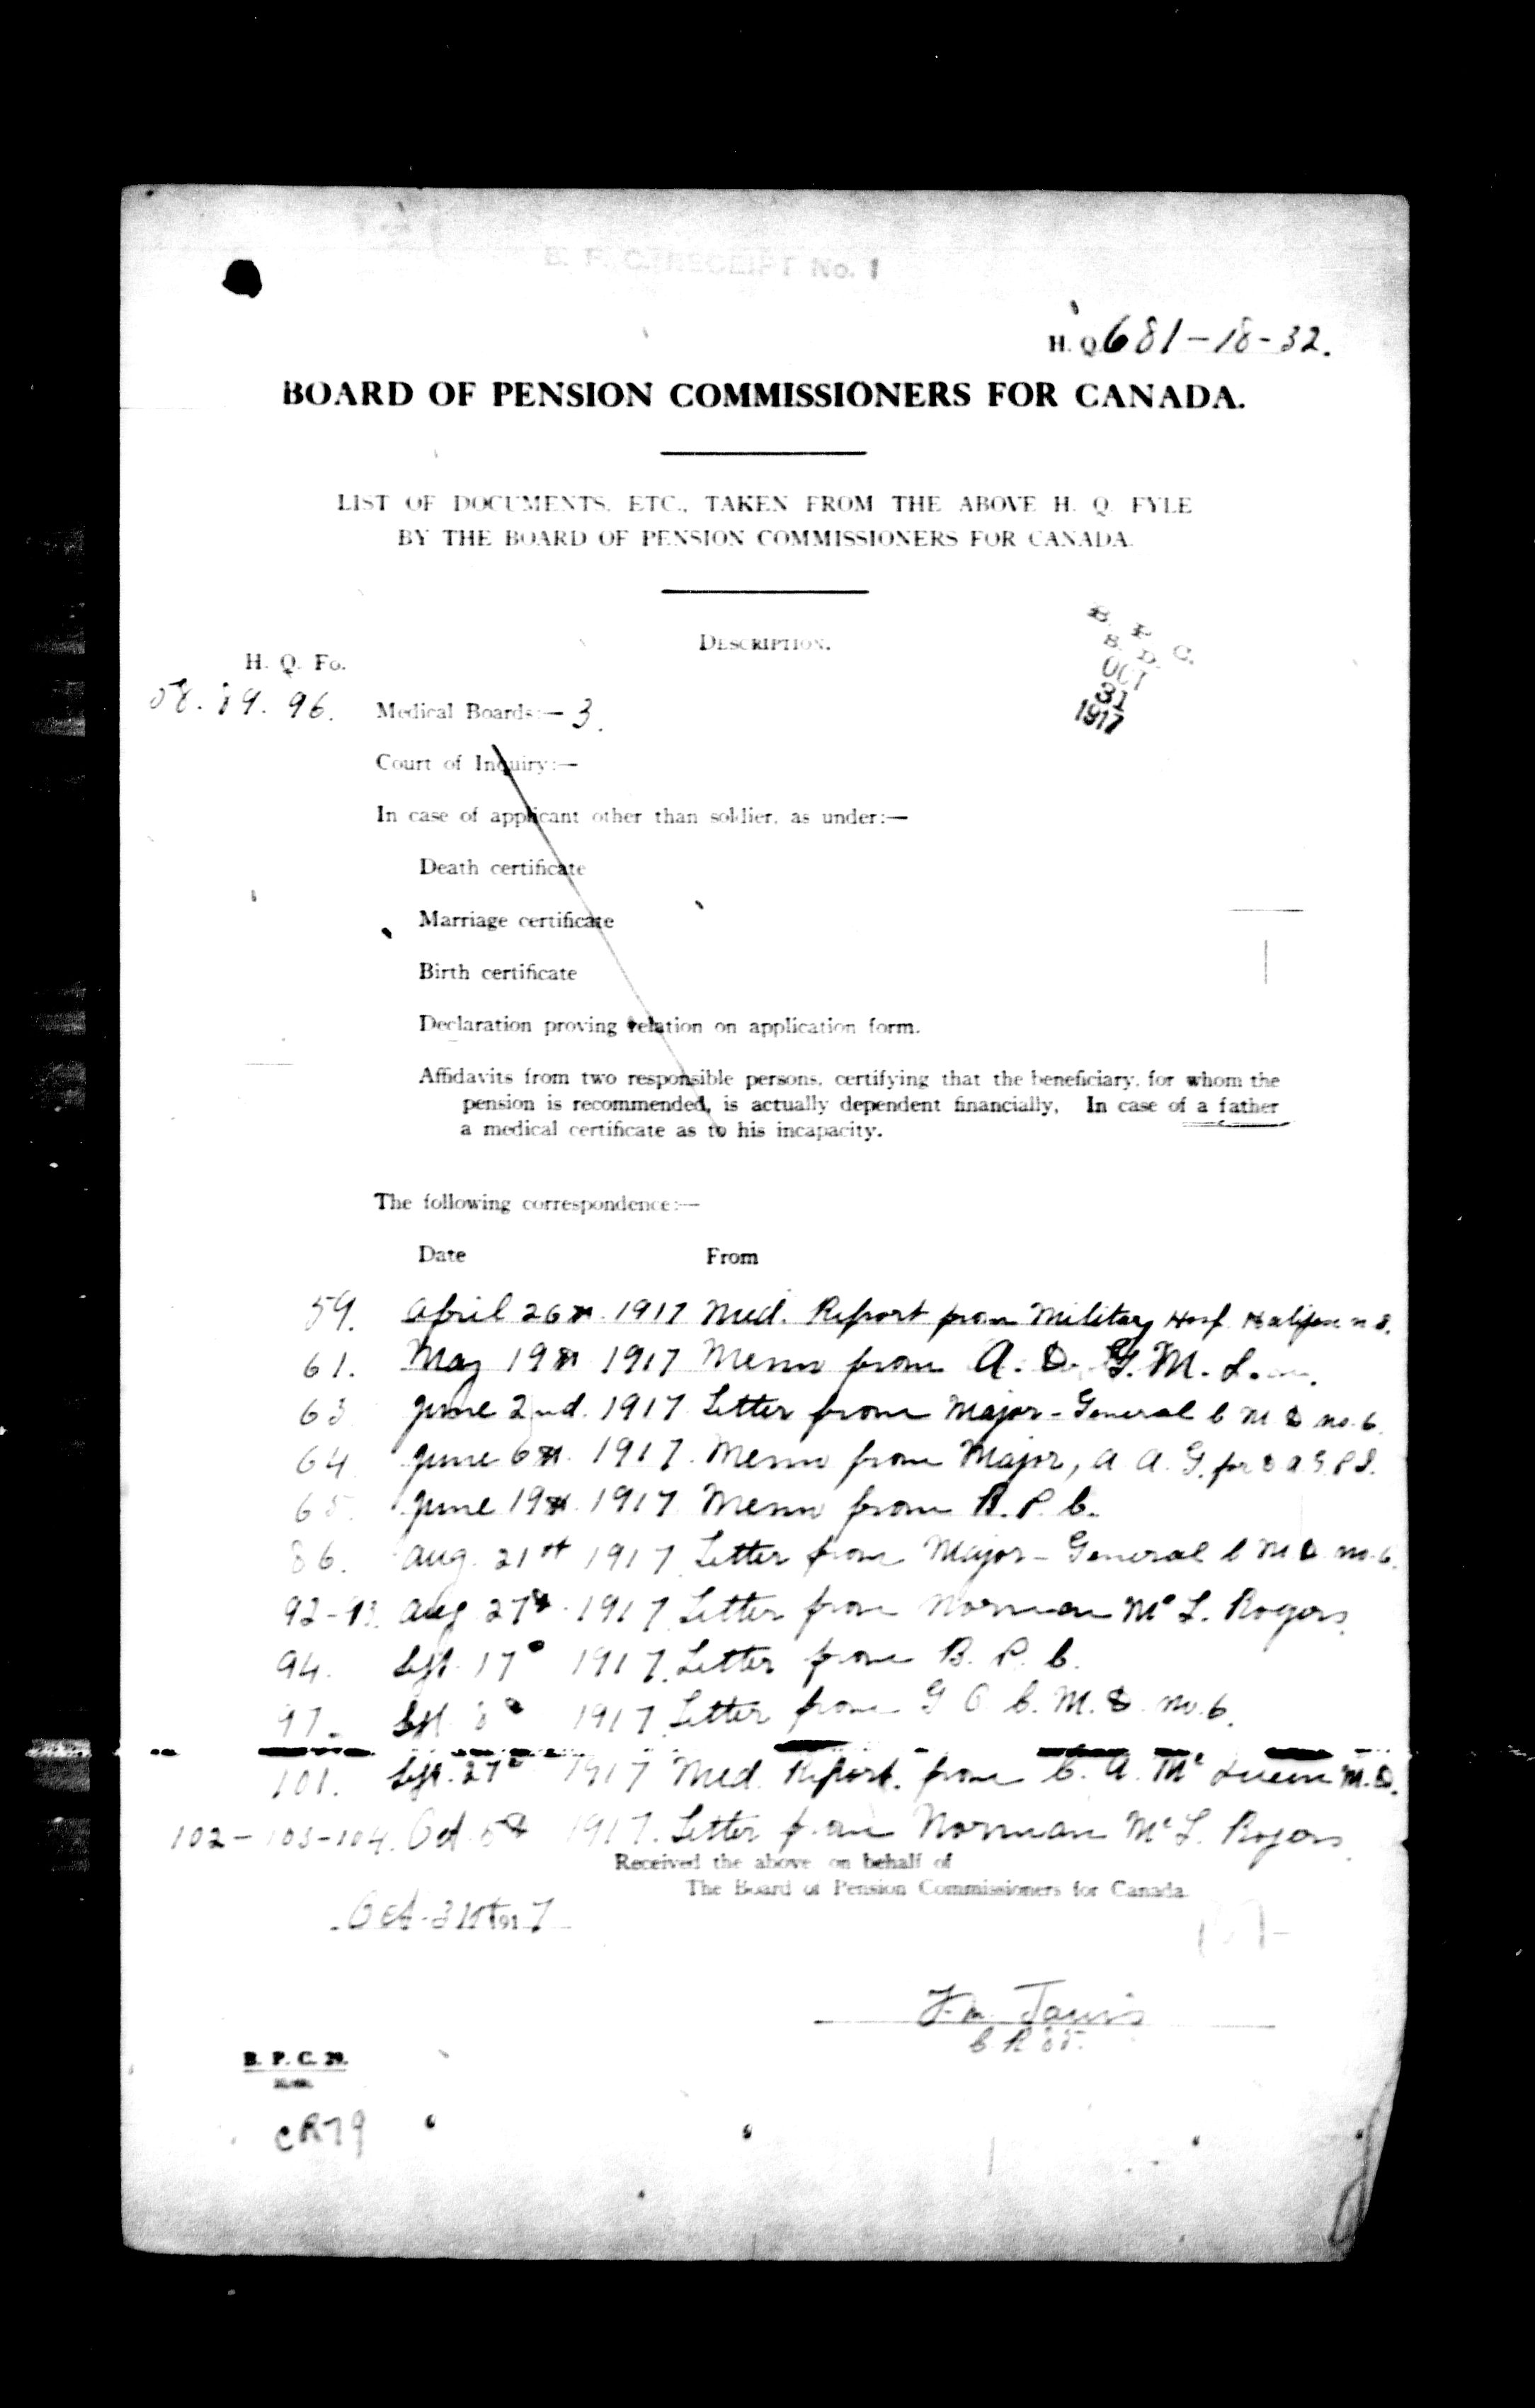 B. P. C. RECEIPT No. 1
H. Q. 681-18-32.
BOARD OF PENSION COMMISSIONERS FOR CANADA.
LIST OF DOCUMENTS, ETC., TAKEN FROM THE ABOVE H. Q. FYLE
BY THE BOARD OF PENSION COMMISSIONERS FOR CANADA.
B. P. C.
B. D.
OCT
31
1917
DESCRIPTION.
H. Q. Fo.
58. 89. 96. Medical Boards:— 3.
Court of Inquiry:—
In case of applicant other than soldier, as under:—
Death certificate
Marriage certificate
Birth certificate
Declaration proving relation on application form.
Affidavits from two responsible persons, certifying that the beneficiary, for whom the
pension is recommended, is actually dependent financially. In case of a father
a medical certificate as to his incapacity.
The following correspondence:—
Date From
59. April 26th 1917 Med. Report from Military Hosp. Halifax N.S.
61. May 19th 1917 Memo from A. D. G. M. S.
63 June 2nd. 1917 Letter from Major-General C M D no. 6.
64 June 6th. 1917. Memo from Major, A A. G. for D A G P S.
65. June 19th. 1917. Memo from B. P. C.
86. Aug. 21st 1917. Letter from Major-General C M D no. 6.
92-93. Aug 27th. 1917. Letter from Norman Mc L. Rogers.
94. Sept. 17th 1917. Letter from B. P. C.
97. Sept. 1917. Letter from G O C. M. D. no. 6.
101. Sept. 27th 1917 Med. Report. from C. A. Mc Queen M.D.
102-103-104. Oct. 5th 1917. Letter from Norman Mc L. Rogers.
Received the above on behalf of
The Board of Pension Commissioners for Canada
Oct. 31st 1917
B. P. C. 29.
CR79